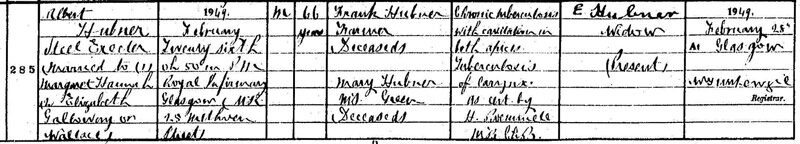 285
Albert
Hubner
Steel Erecter
(married to (1)
Margaret Hannah
(2) Elizabeth
Galloway or
Wallace)
1949.
February
Twenty sixth
0h 50m P.M
Royal Infirmary
Glasgow (U.R.
28 Methven
Street)
M
66
years
Frank Hubner
Farmer
Deceased
Mary Hubner
M.S. Green
Deceased
Chronic tuberculosis
with cavitation in
both apices
Tuberculosis
of larynx
As cert by
H.
M.B. Ch.B.
E Hubner
Widow
(Present)
1949.
February 28th
At Glasgow
Registrar.